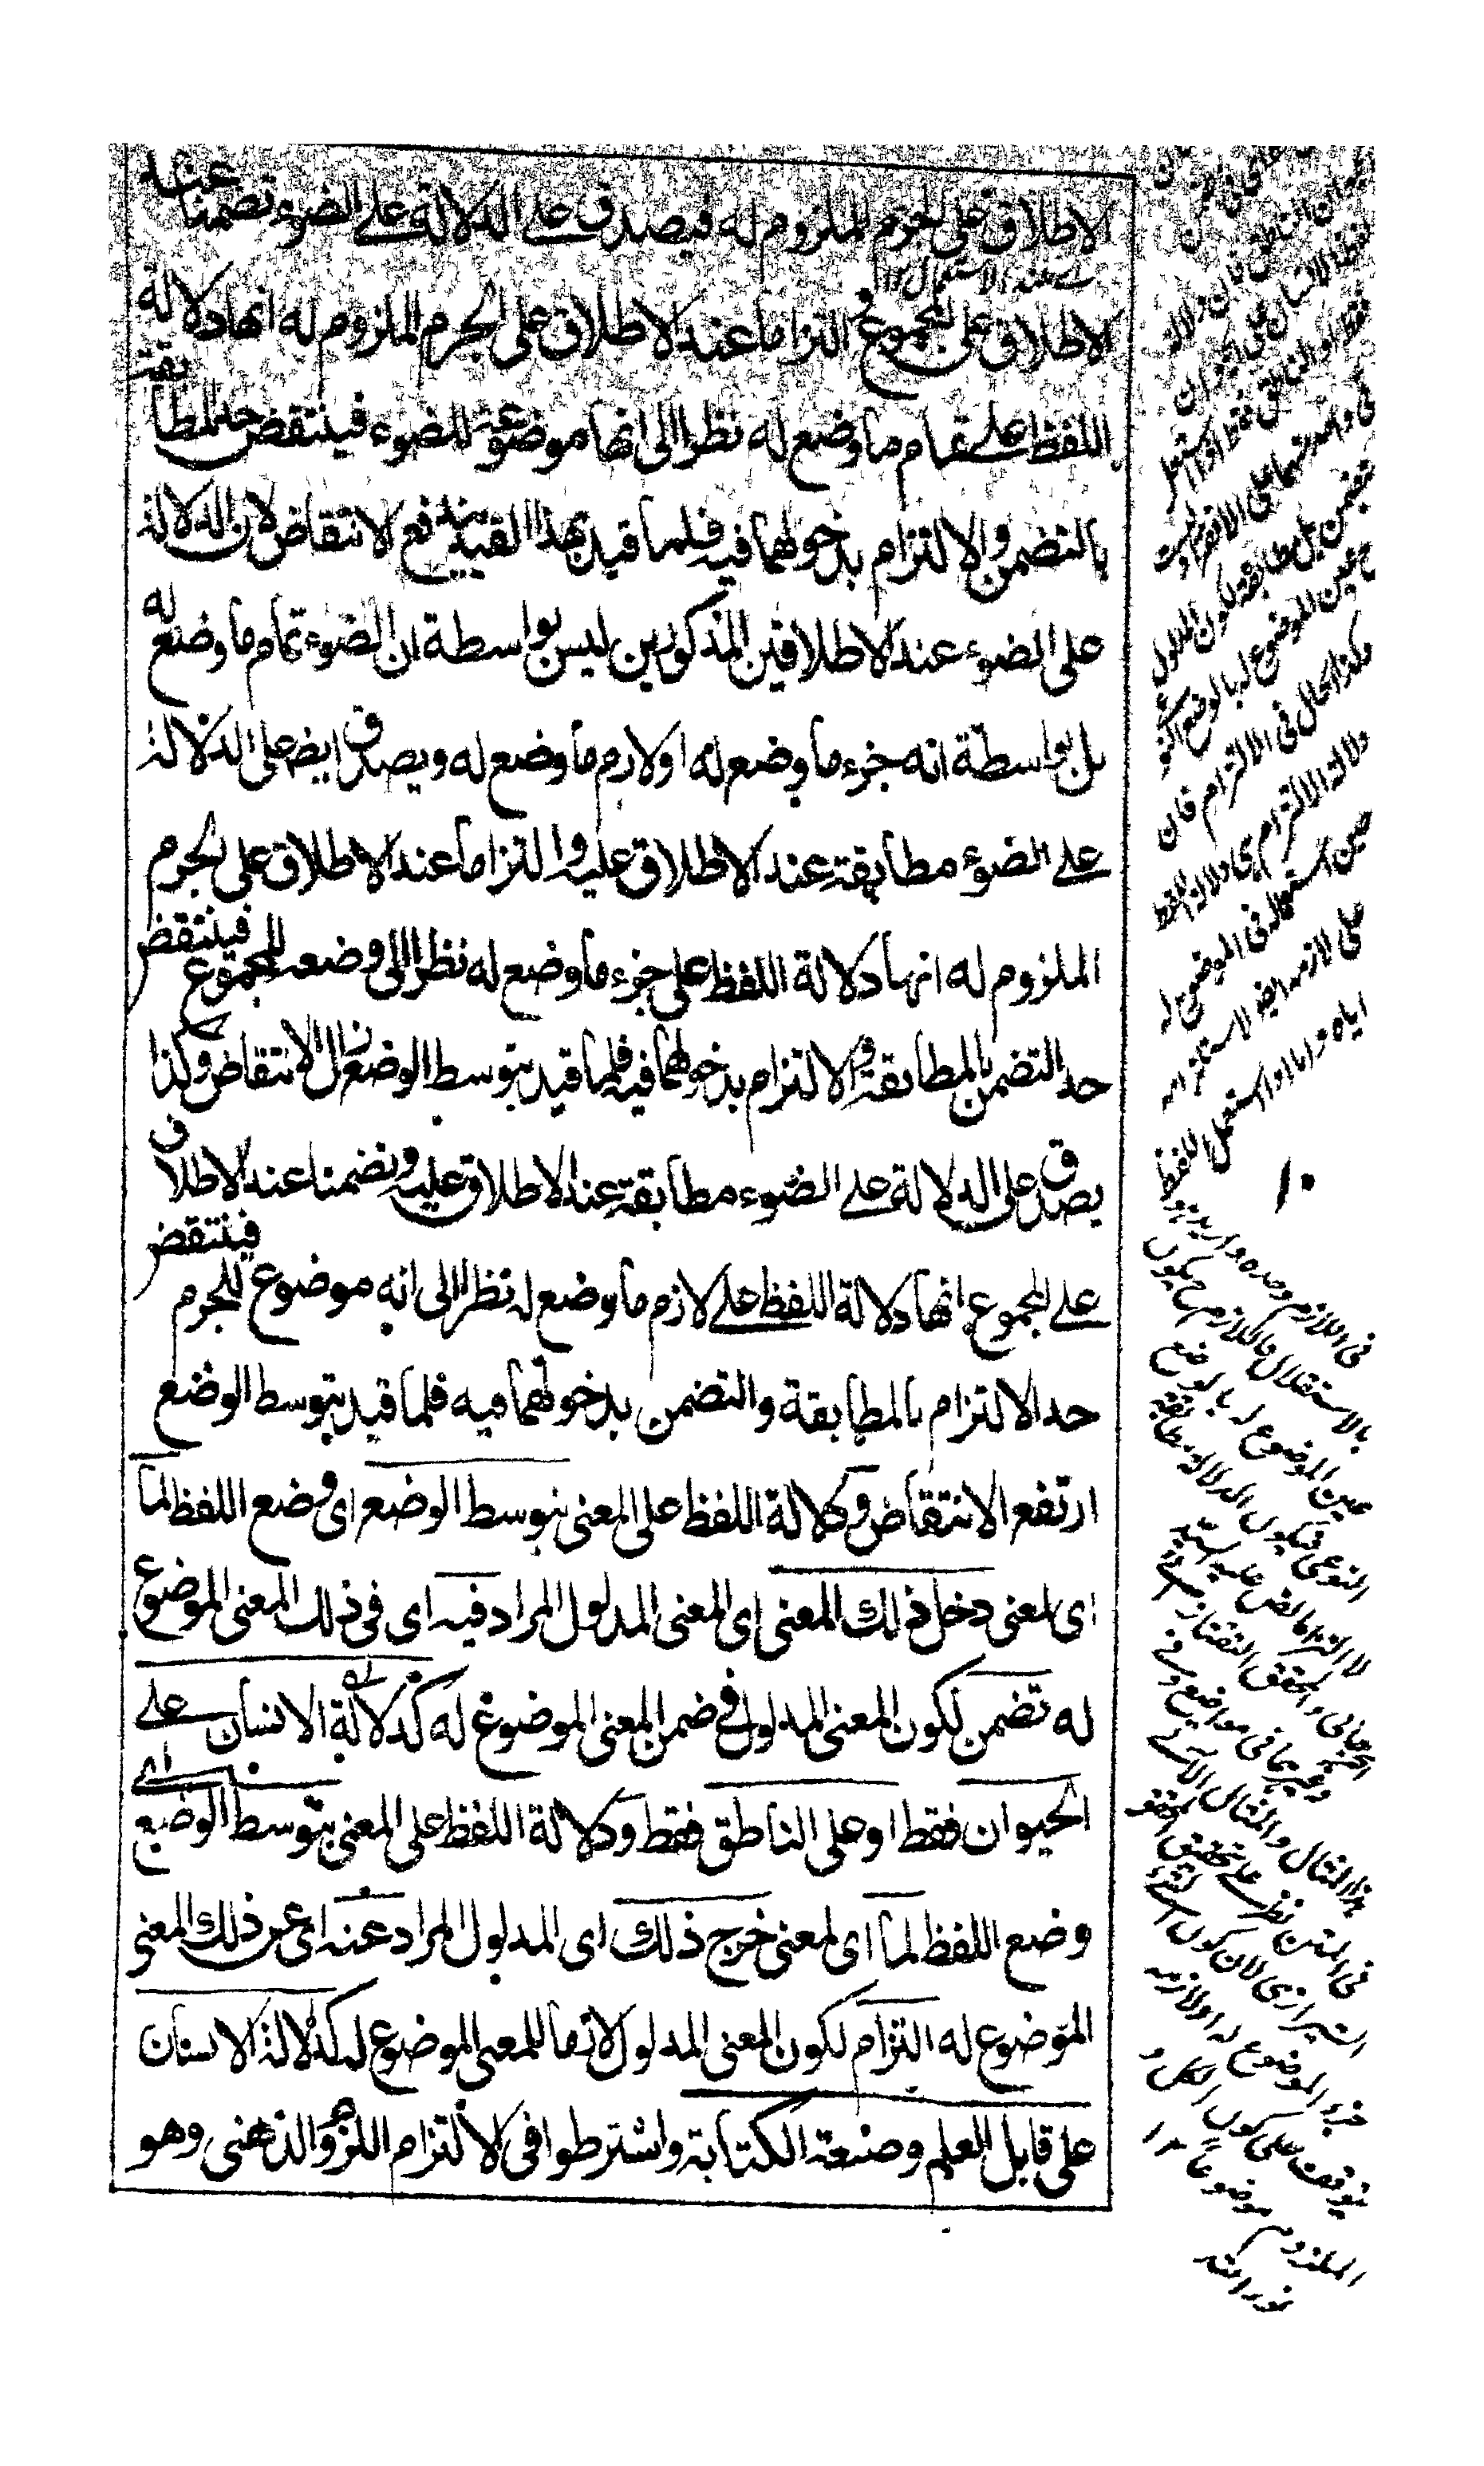 الاطلاق على الجرم الملزوم له فيصدق على الدلالة على الضوء تضمنا عند
الاطلاق على المجموع التزاما عند الاطلاق على الجرم الملزوم له انها دلالة
اللفظ على تمام ما وضع له نظرا الى انها موضوعة للضوء فينتقض حد المطابقة
بالتضمن والالتزام بدخولهما فيه فلما قيد بهذا القيد يرتفع الانتقاض لان الدلالة
على الضوء عند الاطلاقين المذكورين ليس بواسطة ان الضوء تمام ما وضع له
بل بواسطة انه جزء ما وضع له او لازم ما وضع له ويصدق ايضا على الدلالة
على الضوء مطابقة عند الاطلاق عليه والتزاما عند الاطلاق على الجرم
الملزوم له انها دلالة اللفظ على جزء ما وضع له نظرا الى وضعه للمجموع فينتقض
حد التضمن بالمطابقة والالتزام بدخولهما فيه فلما قيد بتوسط الوضع زال الانتقاض وكذا
يصدق على الدلالة على الضوء مطابقة عند الاطلاق عليه وتضمنا عند الاطلاق
على المجموع انها دلالة اللفظ على لازم ما وضع له نظرا الى انه موضوع للجرم فينتقض
حد الالتزام بالمطابقة والتضمن بدخولهما فيه فلما قيد بتوسط الوضع
ارتفع الانتقاض ودلالة اللفظ على المعنى بتوسط الوضع اى وضع اللفظ لما
اى لمعنى دخل ذلك المعنى اى المعنى المدلول المراد فيه اى فى ذلك المعنى الموضوع
له تضمن لكون المعنى المدلول فى ضمن المعنى الموضوع له كدلالة الانسان على
الحيوان فقط او على الناطق فقط ودلالة اللفظ على المعنى بتوسط الوضع اى
وضع اللفظ لما اى لمعنى خرج ذلك اى المدلول المراد عنه اى عن ذلك المعنى
الموضوع له التزام لكون المعنى المدلول لازما للمعنى الموضوع له كدلالة الانسان
على قابل العلم وصنعة الكتابة واشترطوا فى الالتزام اللزوم الذهنى وهو
تضمن بل مطابقة لكون المدلول
ح عين الموضوع له بالوضع
وكذا الحال فى الالتزام فان
دلالة الالتزام اى دلالة اللفظ
على لازمه
اياه واما اذا استعمل اللفظ
١٠
فى اللازم وحده واريد به
بالاستقلال فاللازم ح يكون
عين الموضوع له بالوضع
النوعى فيكون الدلالة مطابقة
لا التزاما
المحقق التفتازانى
هذا المثال والمثال
فى المتن
الشيرازى لان كون
جزء الموضوع له او لازمه
يتوقف على كون الكل و
الملزوم موضوعا
نور الله